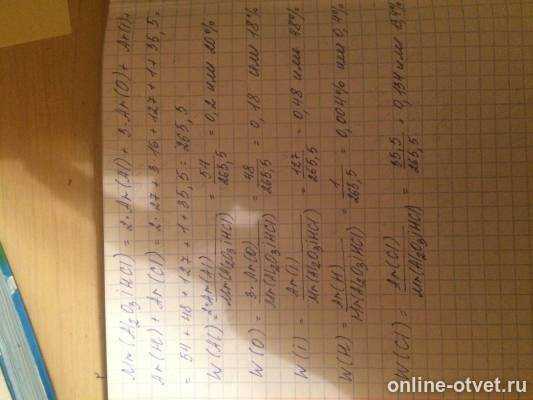 Mr(Al₂O₃iHCl) = 2·Ar(Al) + 3·Ar(O) + Ar(I) +
Ar(H) + Ar(Cl) = 2·27 + 3·16 + 127 + 1 + 35,5 =
= 54 + 48 + 127 + 1 + 35,5 = 265,5
W(Al) = 2·Ar(Al) / Mr(Al₂O₃iHCl) = 54 / 265,5 = 0,2 или 20%
W(O) = 3·Ar(O) / Mr(Al₂O₃iHCl) = 48 / 265,5 = 0,18 или 18%
W(I) = Ar(I) / Mr(Al₂O₃iHCl) = 127 / 265,5 = 0,48 или 48%
W(H) = Ar(H) / Mr(Al₂O₃iHCl) = 1 / 265,5 = 0,004% или 0,4%
W(Cl) = Ar(Cl) / Mr(Al₂O₃iHCl) = 35,5 / 265,5 = 0,134 или 13,4%
online-otvet.ru